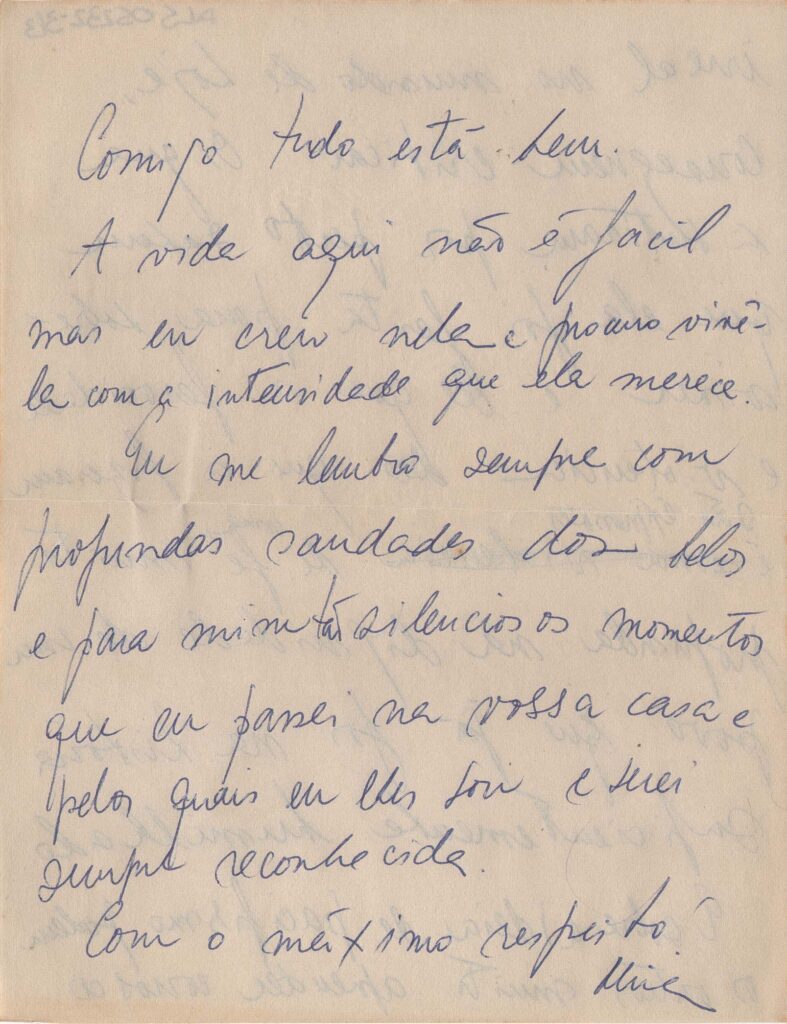 Comigo tudo está bem.
A vida aqui não é fácil
mas eu creio nela e procuro vivê-
la com a intensidade que ela merece.
Eu me lembro sempre com
profundas saudades dos belos
e para mim tão silenciosos momentos
que eu passei na vossa casa e
pelos quais eu lhes sou e serei
sempre reconhecida.
Com o máximo respeito